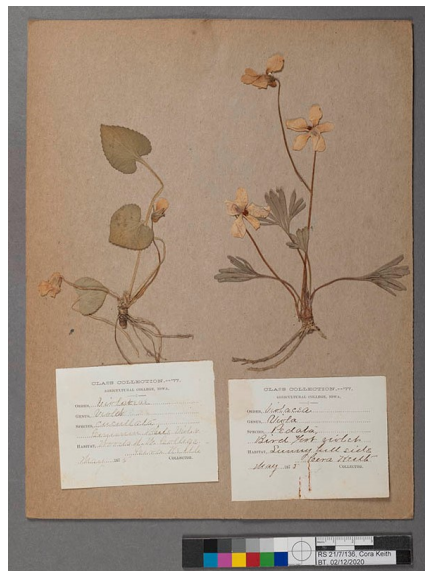 CLASS COLLECTION.—'77.
AGRICULTURAL COLLEGE, IOWA.
ORDER,
GENUS, Viola
SPECIES, cucullata,
Common
HABITAT, Woods, College
COLLECTOR.
CLASS COLLECTION.—'77.
AGRICULTURAL COLLEGE, IOWA.
ORDER, Violacea
GENUS, Viola
SPECIES, Pedata,
Bird Foot violet
HABITAT, Sunny hill side
Cora Keith
May COLLECTOR.
RS 21/7/136, Cora Keith
BT. 02/12/2020